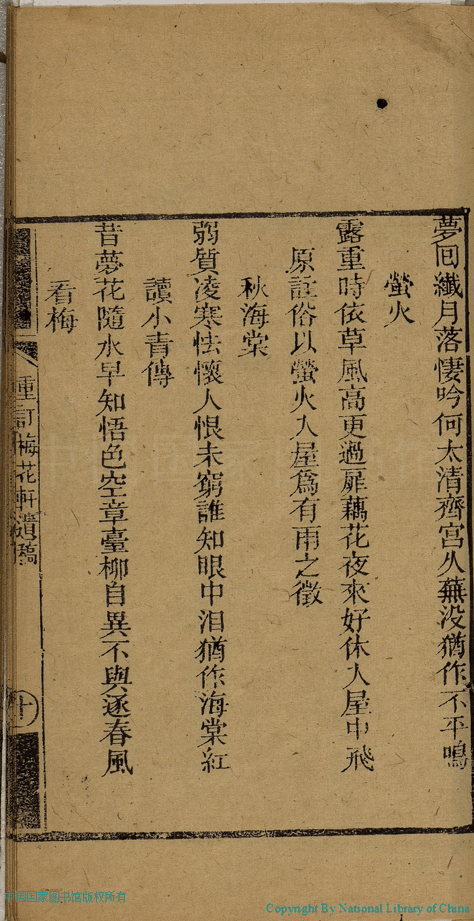 夢回纖月落悽吟何太清齊宮久蕪没猶作不平鳴
螢火
露重時依草風高更過扉藕花夜來好休入屋中飛
原註俗以螢火入屋爲有雨之徵
秋海棠
弱質凌寒怯懷人恨未窮誰知眼中泪猶作海棠紅
讀小青傳
昔夢花隨水早知悟色空章臺柳自異不與逐春風
看梅
重訂梅花軒遺稿
十
中国国家图书馆版权所有
Copyright By National Library of China